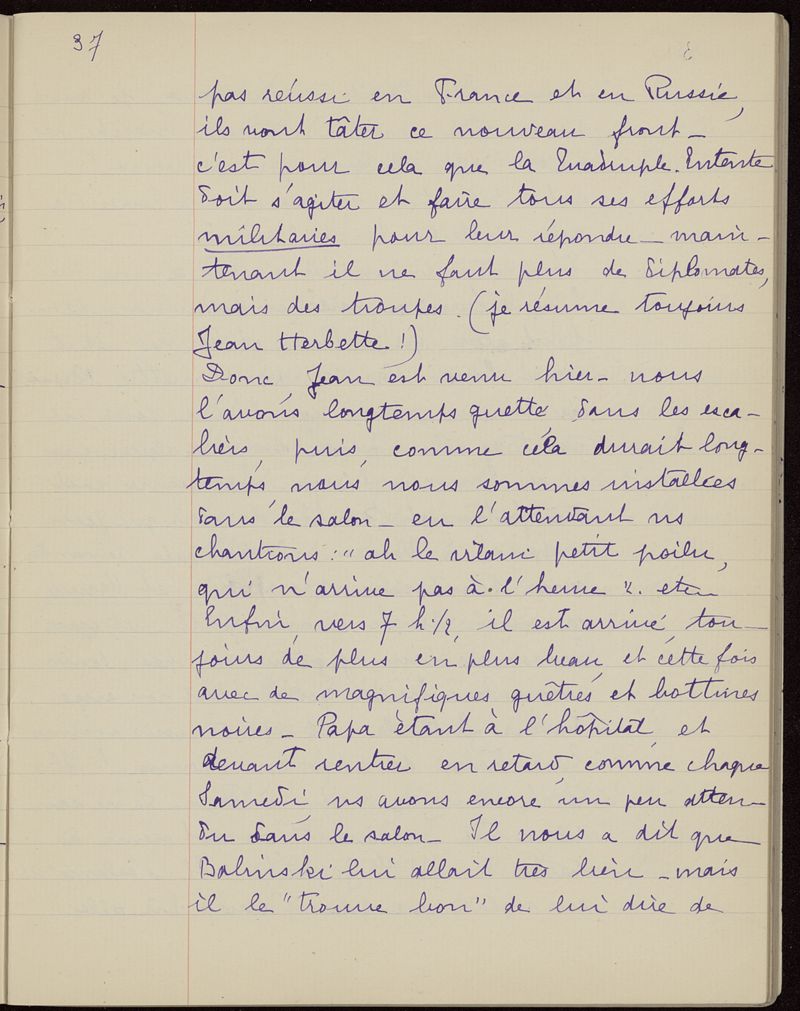 37
pas réussi en France et en Russie,
ils vont tâter ce nouveau front –
c'est pour cela que la Quadruple. Entente
doit s'agiter et faire tous ses efforts
militaires pour leur répondre – main-
tenant il ne faut plus de diplomates,
mais des troupes. (je résume toujours
Jean Herbette !)
Donc Jean est venu hier – nous
l'avons longtemps guetté dans les esca-
liers, puis, comme cela durait long-
temps, nous nous sommes installées
dans le salon – en l'attendant ns
chantions : "ah le vilain petit poilu,
qui n'arrive pas à l'heure". etc
Enfin, vers 7 h 1/2, il est arrivé, tou-
jours de plus en plus beau, et cette fois
avec de magnifiques guêtres et bottines
noires – Papa étant à l'hôpital, et
devant rentrer en retard, comme chaque
Samedi, ns avons encore un peu atten-
du dans le salon – Il nous a dit que
Balinski lui allait très bien – mais
il le "trouve bon" de lui dire de